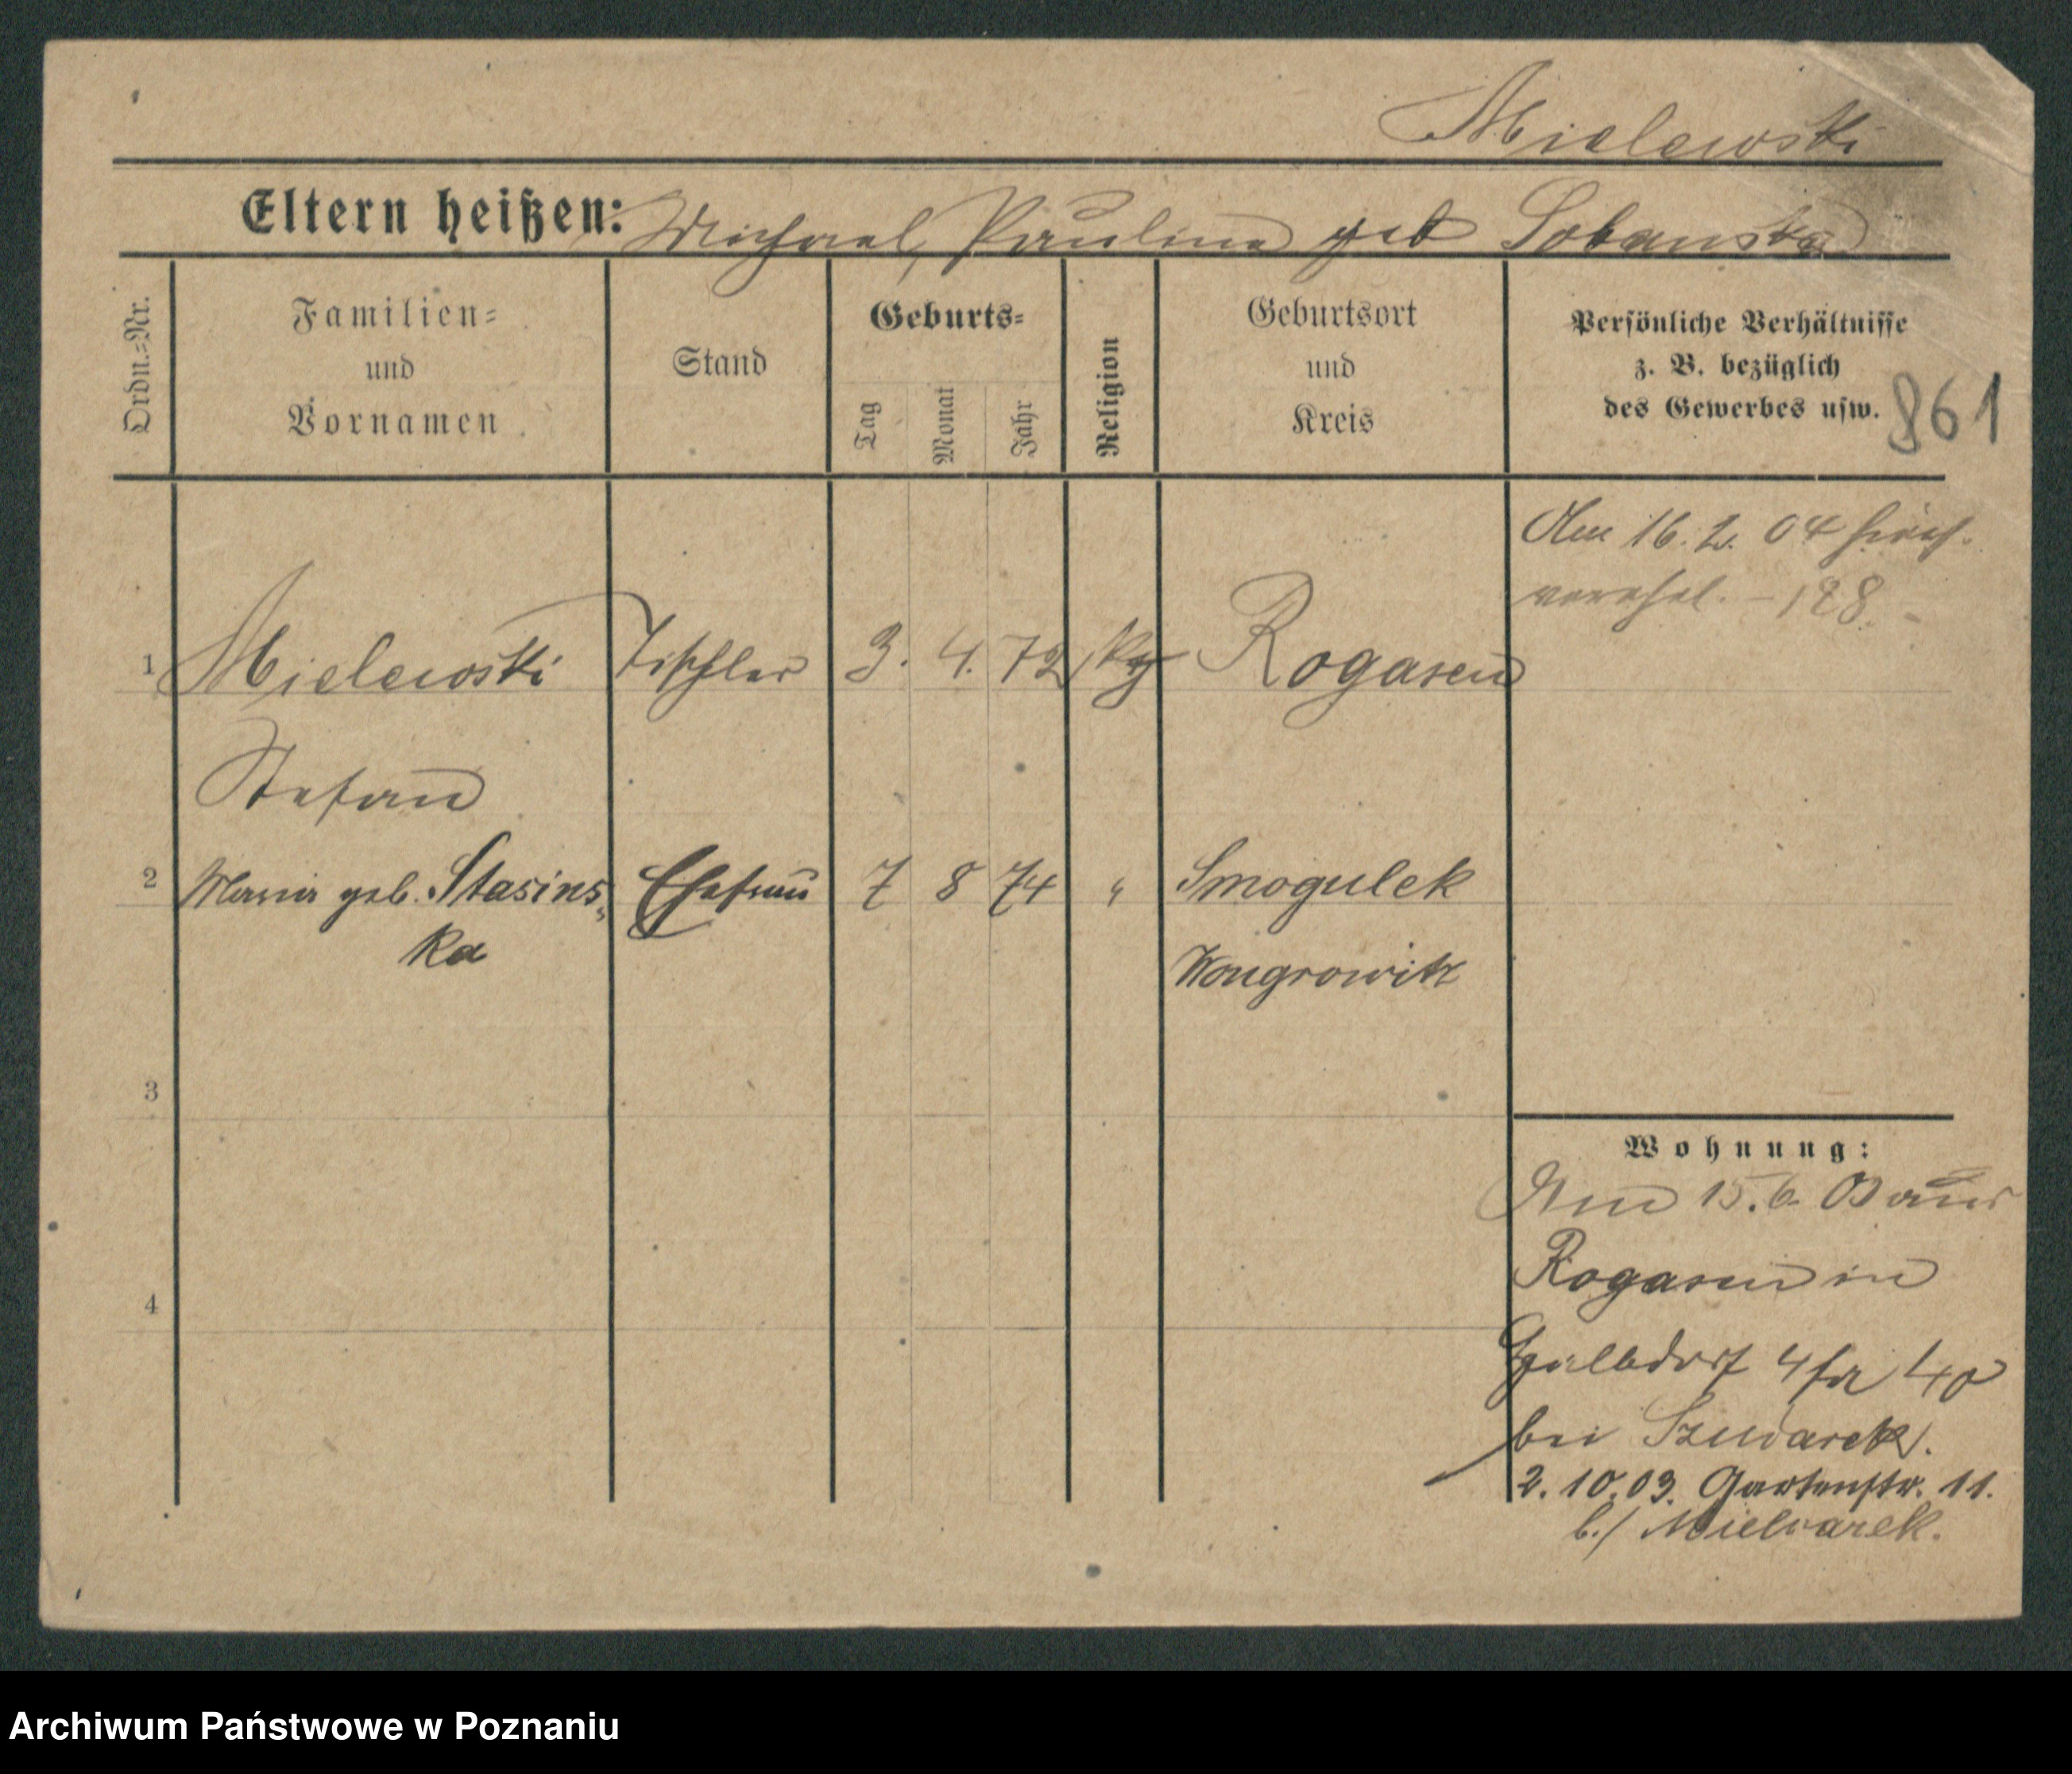 Mielewski
Eltern heißen: Michael, Paulina geb Sobanska
Ordn.=Nr.
Familien=
und
Vornamen
Stand
Geburts=
Tag
Monat
Jahr
Religion
Geburtsort
und
Kreis
Persönliche Verhältnisse
z. B. bezüglich
des Gewerbes usw.
861
Am 16. 2. 04 hier
verehel. - 128.
1 Mielewski Tischler 3. 4. 72 Rogasen
Stefan
2 Maria geb. Stasins, Ehefrau 7 8 74 " Smogulek
ka
Wongrowitz
3
4
Wohnung:
Am 15. 6. 03 aus
Rogasen in
40
bei
2. 10. 03. Gartenstr. 11.
b./ Mielcarek.
Archiwum Państwowe w Poznaniu